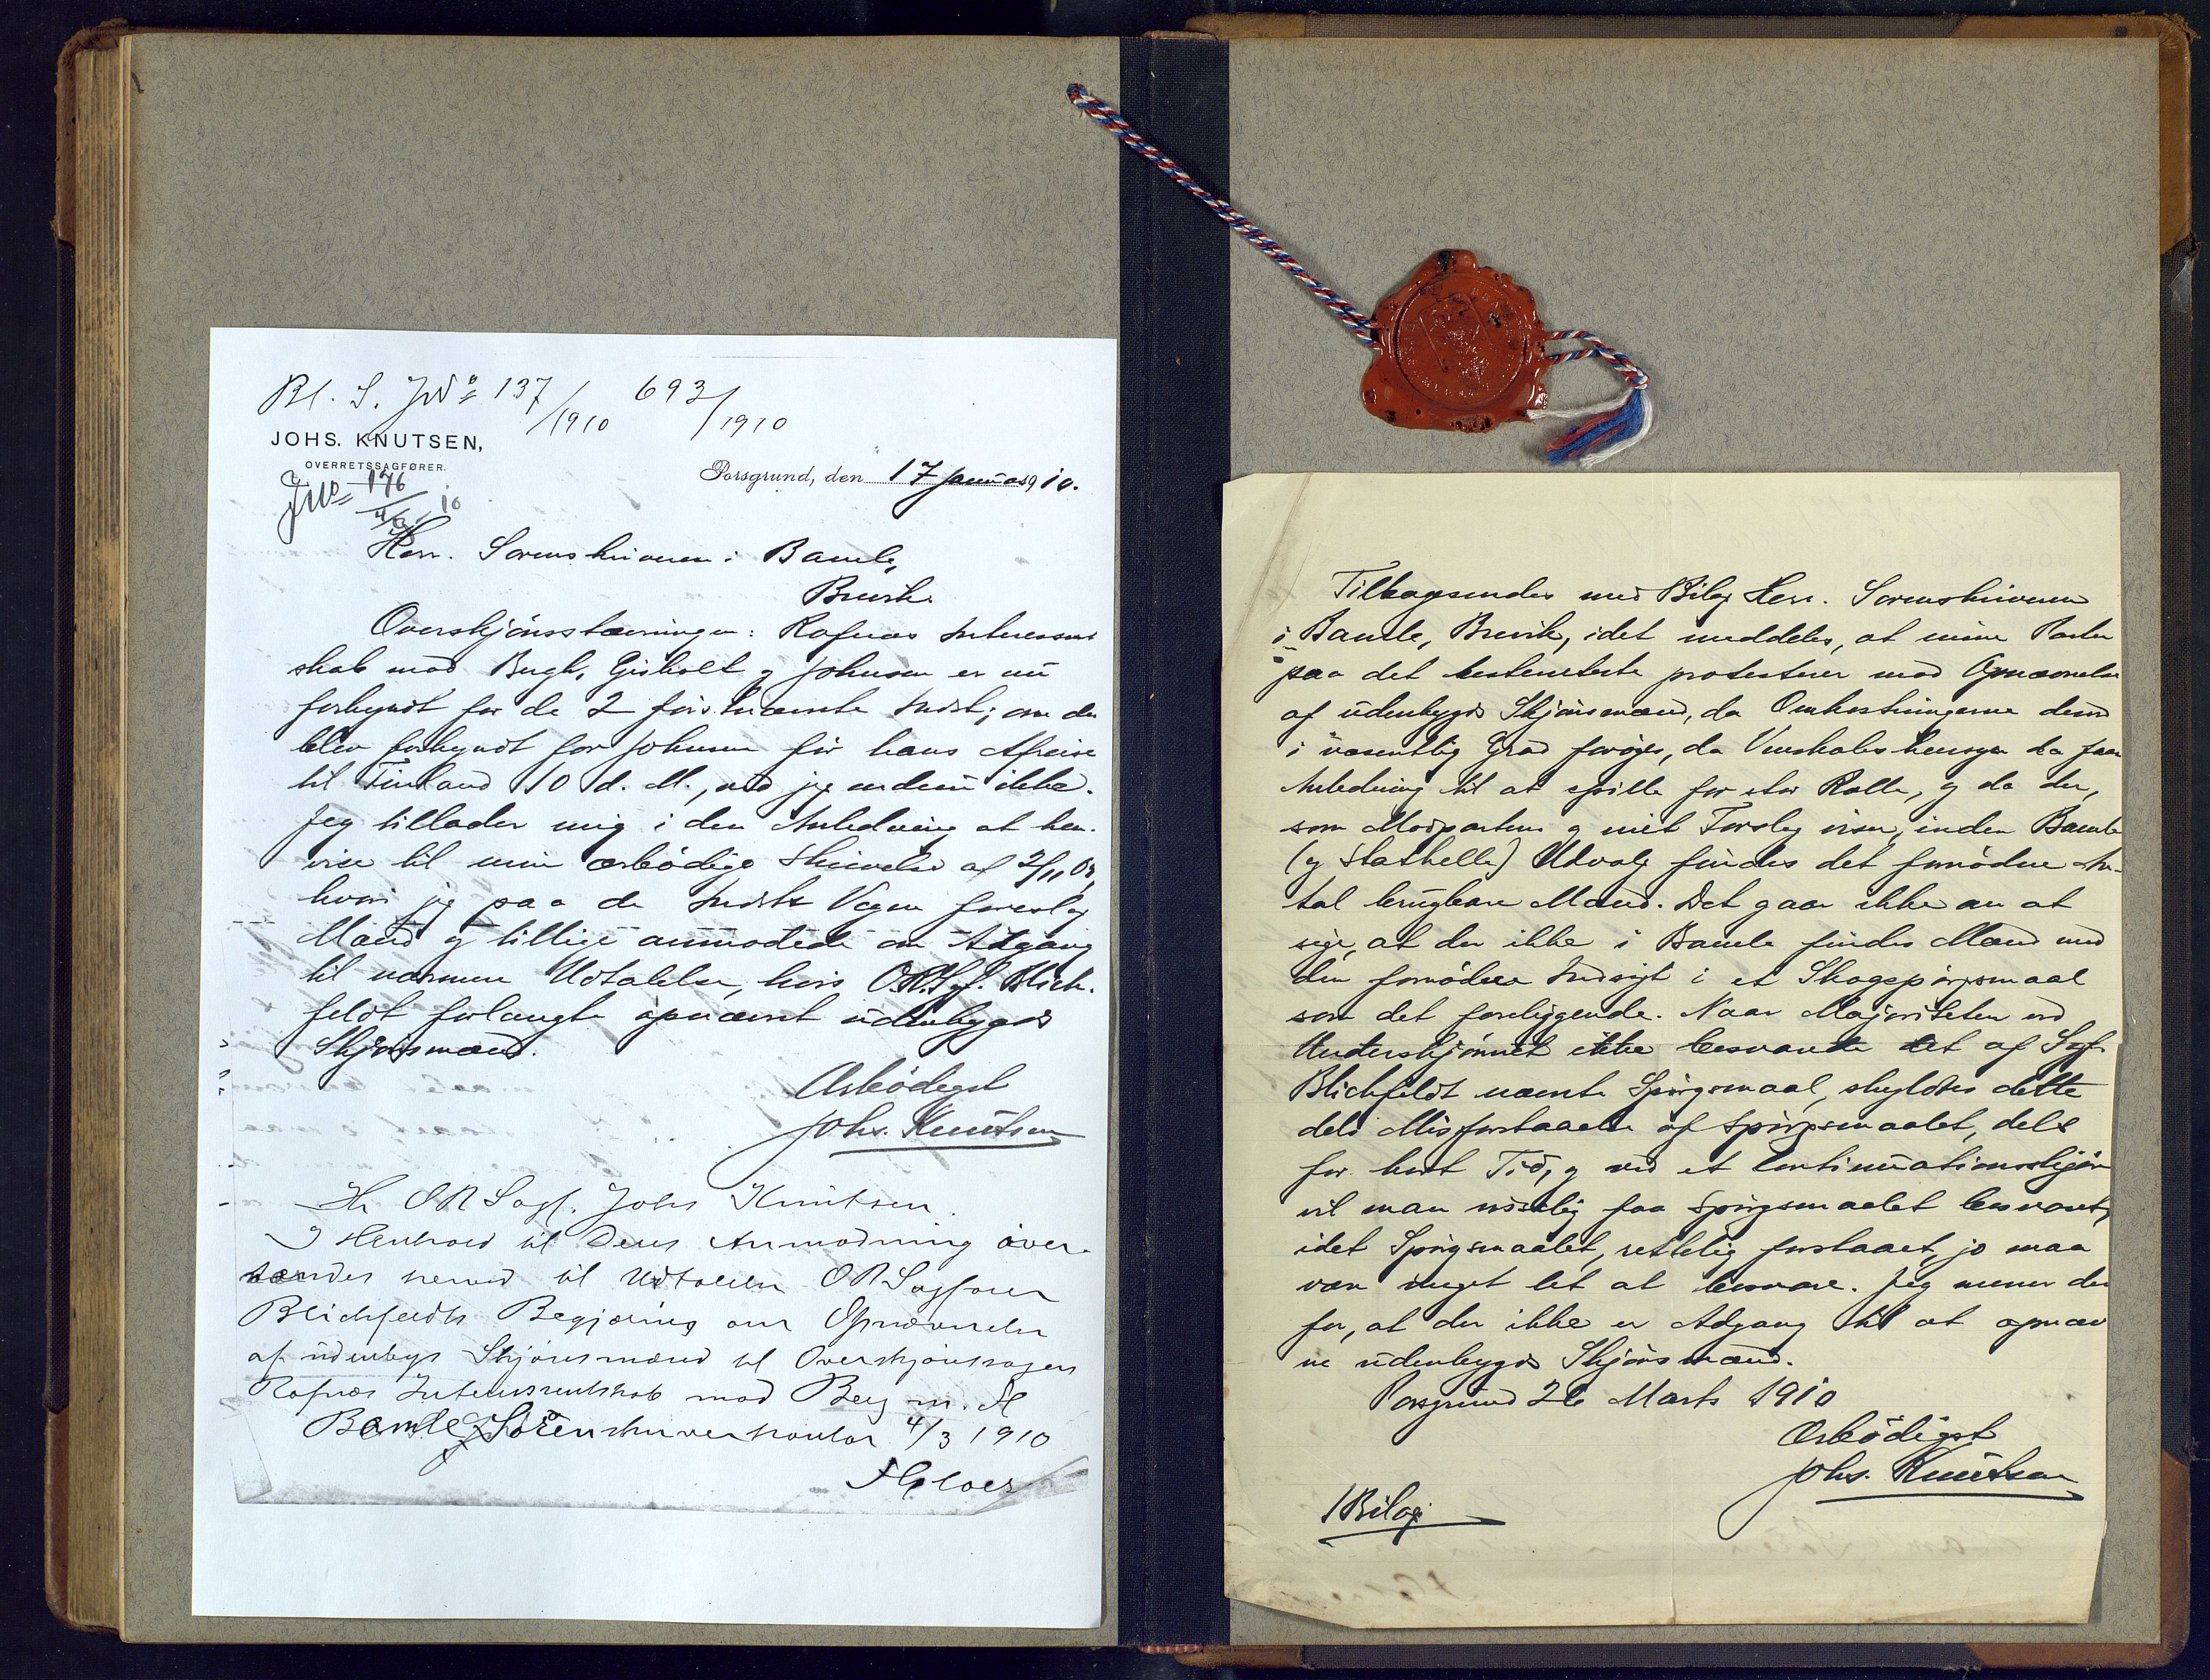 Bl. S. JNo 137/1910 693/1910
JOHS. KNUTSEN,
OVERRETSSAGFØRER.
Porsgrund, den 17 Januar 1910.
JNo 176 4/3 10
Herr. Sorenskriveren i Bamle,
Brevik.
Overskjønsstævningen: Rafnes Interessent
skab mod Bugh, Gisholt og Johnsen er nu
forkyndt for de 2 førstnævnte Indst; om den
blev forkyndt for Johnsen før hans Afreise
til Finland 10 d. M., ved jeg endnu ikke.
Jeg tillader mig i den Anledning at hen-
vise til min ærbødige Skrivelse af 2/11 09,
hvori jeg paa de Indst Vegne foreslog
Mænd og tillige anmodede om Adgang
til nærmere Udtalelse, hvis O.R.Sgf. Blich-
feldt forlangte opnævnt udenbygds
Skjønsmænd.
Ærbødigst
Johs. Knutsen
Hr ORSagf. Johs Knutsen.
I Henhold til Deres Anmodning over-
sendes herved til Udtalelse ORSagfører
Blichfeldts Begjæring om Opnævnelse
af udenbygs Skjønsmænd til Overskjønssagen
Rafnes Interessentskab mod Berg m. fl
Bamle Sorenskriverkontor 4/3 1910
Tilbagesendes med Bilag Herr. Sorenskriveren
i Bamle, Brevik, idet meddeles, at mine Parter
paa det bestemteste protesterer mod Opnævnelse
af udenbygds Skjønsmænd, da Omkostningerne derved
i væsentlig Grad forøges, da Venskabshensyn da faar
Anledning til at spille for stor Rolle, og da der,
som Modpartens og mit Forslag viser, inden Bamle
(og Stathelle) Udvalg findes det fornødne An-
tal brugbare Mænd. Det gaar ikke an at
sige, at der ikke i Bamle findes Mænd med
den fornødne Indsigt i et Skogspørgsmaal
som det foreliggende. Naar Majoriteten ved
Underskjønnet ikke besvarte det af Sagf.
Blichfeldt nævnte Spørgsmaal, skyldtes dette
dels Misforstaaelse af Spørgsmaalet, dels
for kort Tid, og ved et Continuationsskjøn
vil man visselig faa Spørgsmaalet besvaret,
idet Spørgsmaalet, rettelig forstaaet, jo maa
være meget let at besvare. Jeg mener der
for, at der ikke er Adgang til at opnæv
ne udenbygds Skjønsmænd.
Porsgrund 26 Marts 1910
Ærbødigst
Johs. Knutsen
1 Bilag.